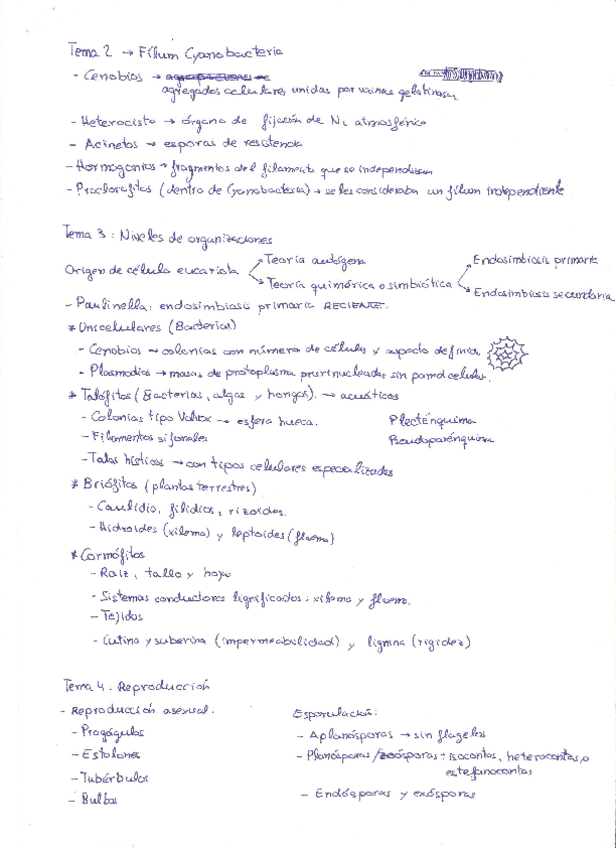 Tema 2 → Fílum Cyanobacteria
- Cenobios →
agregados celulares, unidas por vainas gelatinosas.
- Heterocisto → órgano de fijación de N₂ atmosférico
- Acinetos → esporas de resistencia
- Hormogonios → fragmentos del filamento que se independizan
- Proclorofitos (dentro de Cyanobacteria) → se les consideraba un fílum independiente
Tema 3: Niveles de organizaciones
Origen de célula eucariota
Teoría autógena
Teoría quimérica o simbiótica
Endosimbiosis primaria
Endosimbiosis secundaria
- Paulinella: endosimbiosis primaria RECIENTE.
* Unicelulares (Bacterias)
- Cenobios → colonias con número de células y aspecto definido
- Plasmodios → masas de protoplasma plurinucleadas sin pared celular.
* Talófitos (Bacterias, algas y hongos). → acuáticos
- Colonias tipo Volvox → esfera hueca.
Plecténquima
- Filamentos sifonales
Pseudoparénquima
- Talos hísticos → con tipos celulares especializados
* Briófitos (plantas terrestres)
- Caulidio, filidios, rizoides.
- Hidroides (xilema) y leptoides (floema)
* Cormófitos
- Raíz, tallo y hoja
- Sistemas conductores lignificados: xilema y floema.
- Tejidos
- Cutina y suberina (impermeabilidad) y lignina (rigidez)
Tema 4. Reproducción
- Reproducción asexual.
- Propágulos
- Estolones
- Tubérbulos
- Bulbos
Esporulación:
- Aplanósporas → sin flagelos
- Planósporas / zoósporas: isocontas, heterocontas, o
estefanocontas
- Endósporas y exósporas